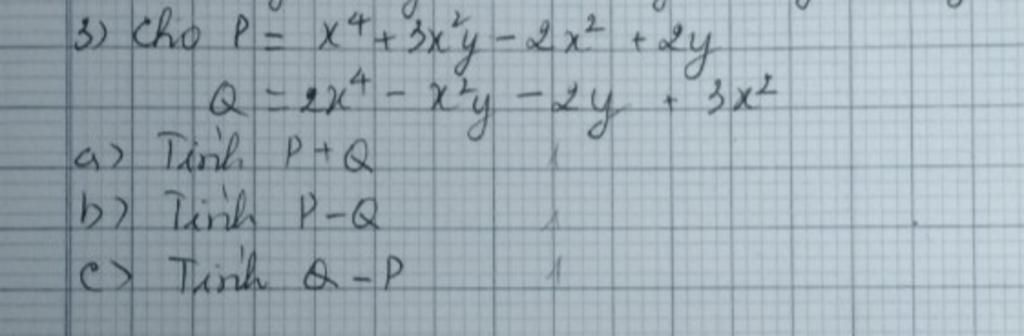 3) Cho P = x⁴ + 3x²y - 2x² + 2y
Q = 2x⁴ - x²y - 2y + 3x²
a) Tính P + Q
b) Tính P - Q
c) Tính Q - P